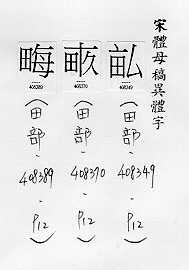 宋體母稿異體字
畮 408389 (田部-408389-P12)
畞 408370 (田部-408370-P12)
408349 (田部-408349-P12)